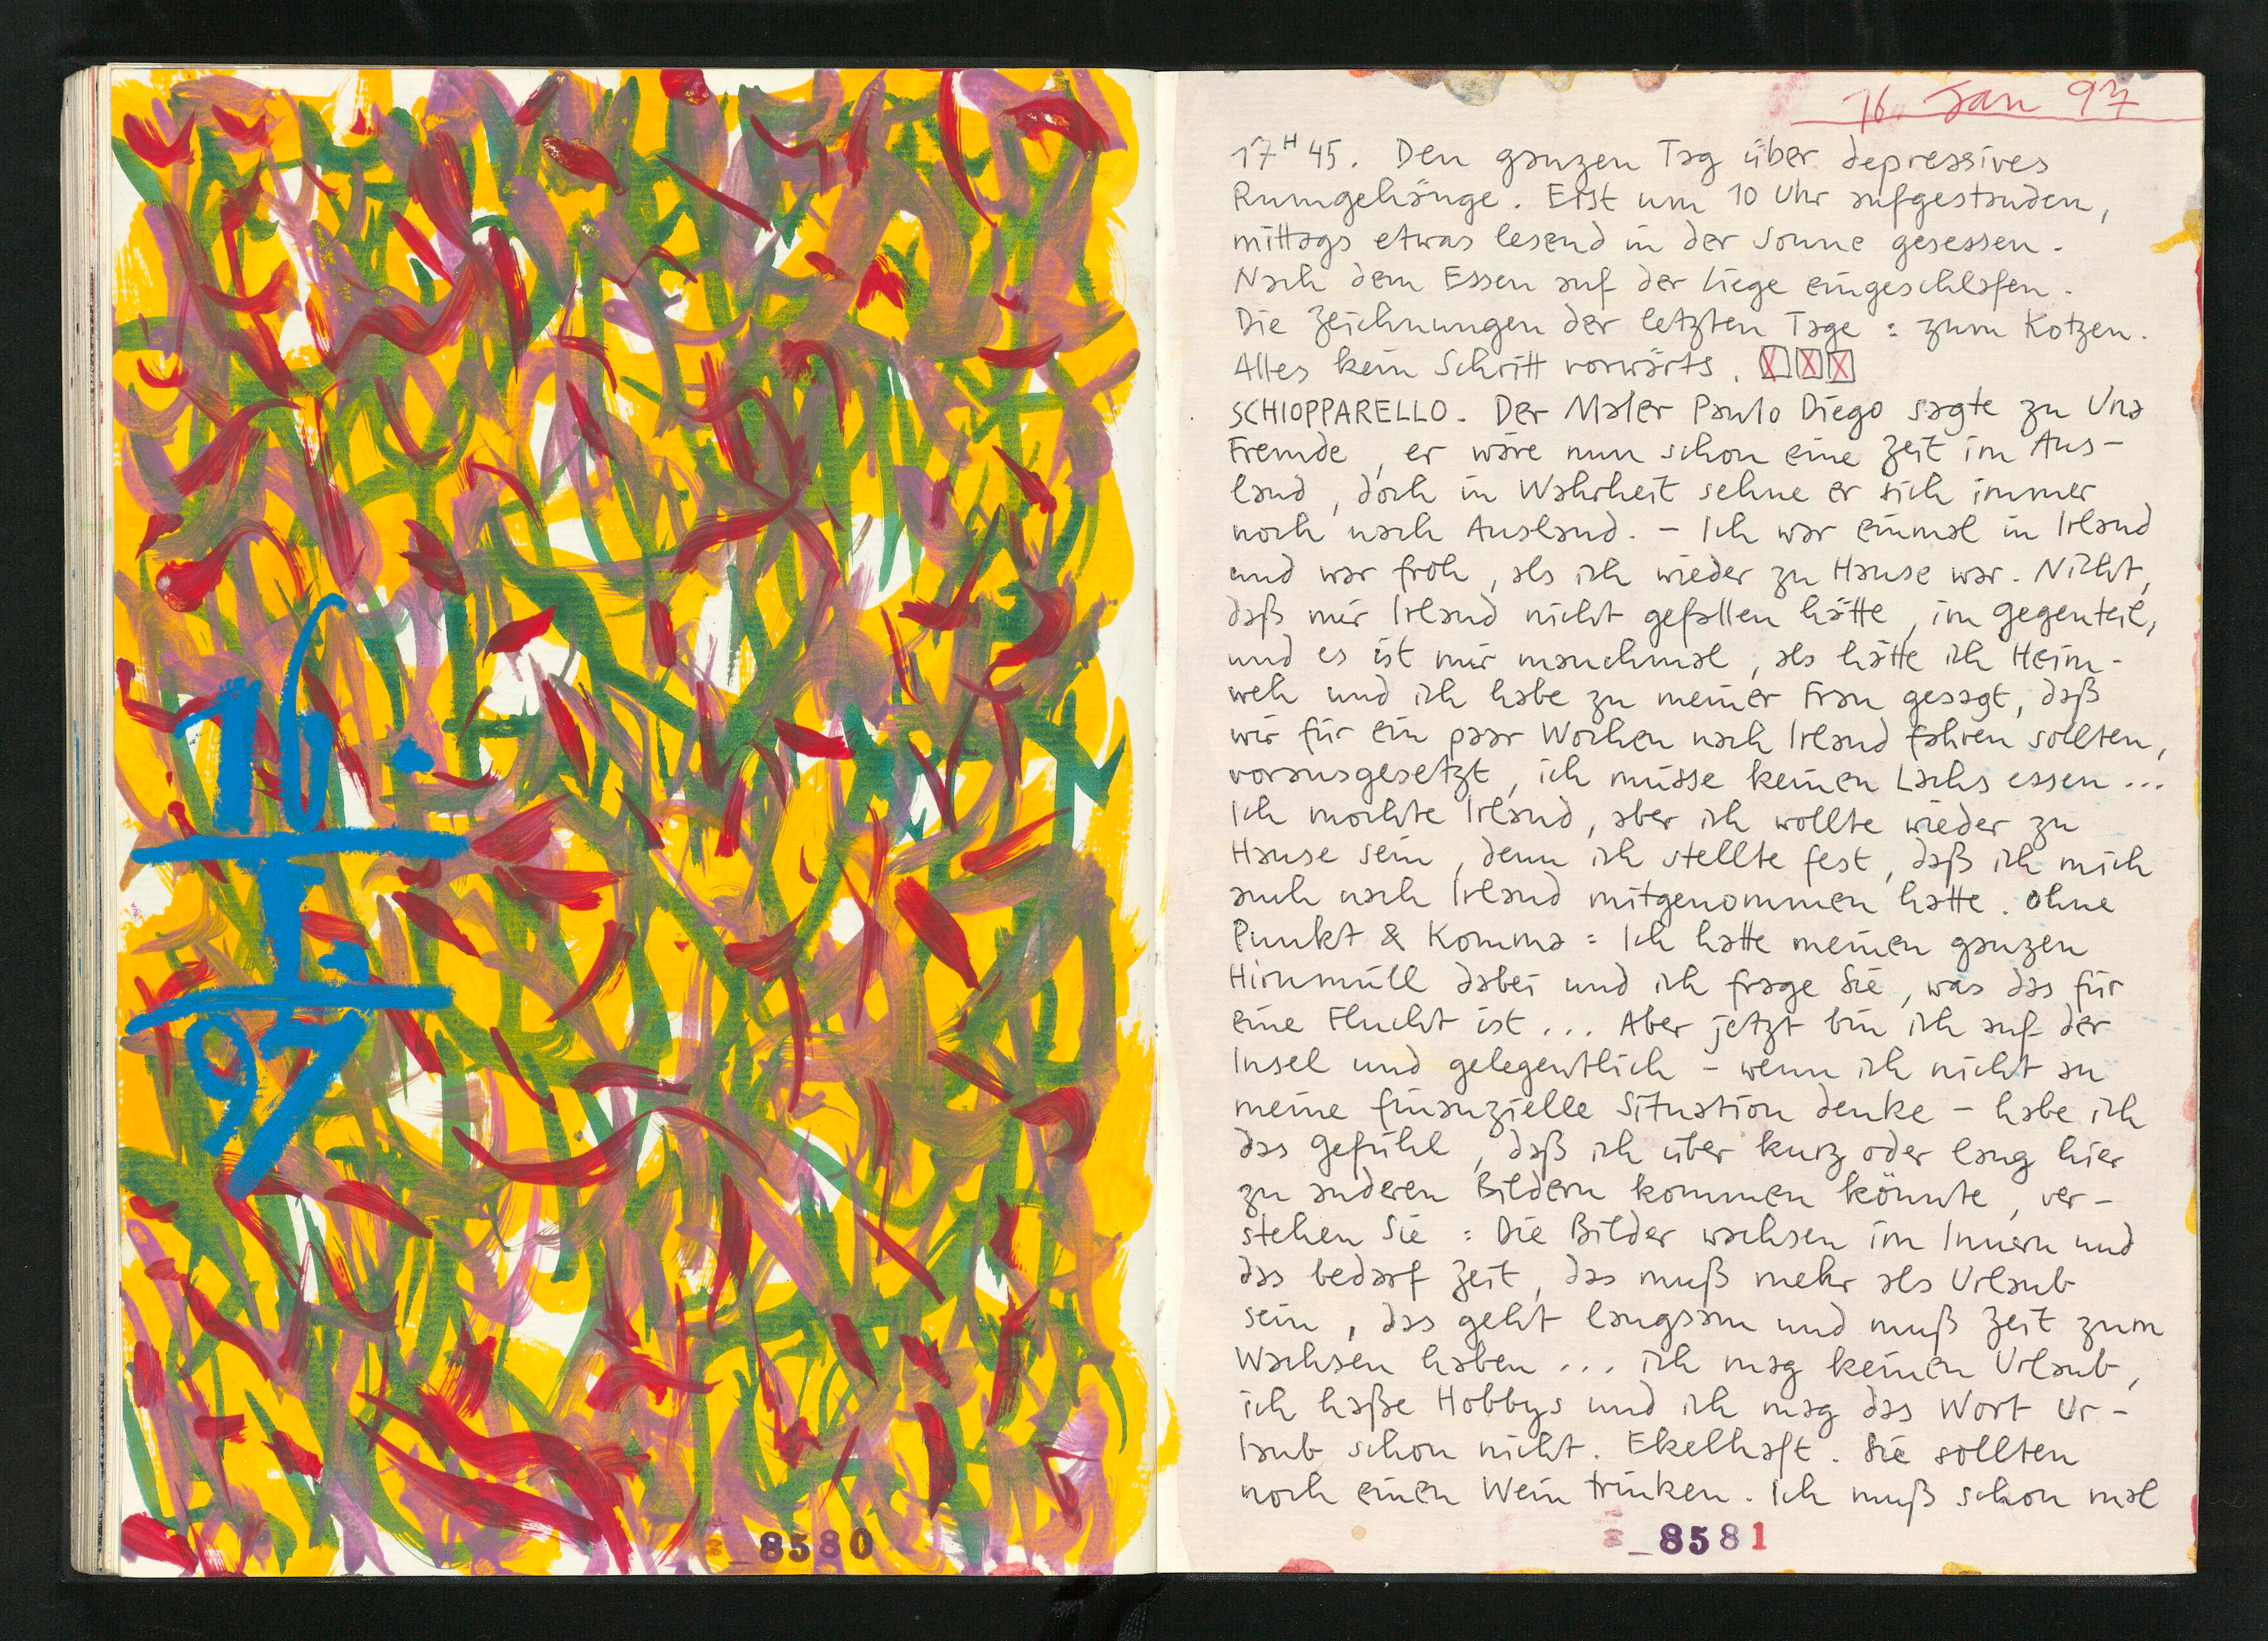 16.
I.
97
8580
16. Jan 97
17H45. Den ganzen Tag über depressives
Rumgehänge. Erst um 10 Uhr aufgestanden,
mittags etwas lesend in der Sonne gesessen.
Nach dem Essen auf der Liege eingeschlafen.
Die Zeichnungen der letzten Tage: zum Kotzen.
Alles kein Schritt vorwärts.
SCHIOPPARELLO. Der Maler Paulo Diego sagte zu Una
Fremde, er wäre nun schon eine Zeit im Aus-
land, doch in Wahrheit sehne er sich immer
noch nach Ausland. - Ich war einmal in Irland
und war froh, als ich wieder zu Hause war. Nicht,
daß mir Irland nicht gefallen hätte, im Gegenteil,
und es ist mir manchmal, als hätte ich Heim-
weh und ich habe zu meiner Frau gesagt, daß
wir für ein paar Wochen nach Irland fahren sollten,
vorausgesetzt, ich müsse keinen Lachs essen...
Ich mochte Irland, aber ich wollte wieder zu
Hause sein, denn ich stellte fest, daß ich mich
auch nach Irland mitgenommen hatte. Ohne
Punkt & Komma: Ich hatte meinen ganzen
Hirnmüll dabei und ich frage Sie, was das für
eine Flucht ist... Aber jetzt bin ich auf der
Insel und gelegentlich - wenn ich nicht an
meine finanzielle Situation denke - habe ich
das Gefühl, daß ich über kurz oder lang hier
zu anderen Bildern kommen könnte, ver-
stehen Sie: Die Bilder wachsen im Innern und
das bedarf Zeit, das muß mehr als Urlaub
sein, das geht langsam und muß Zeit zum
Wachsen haben... ich mag keinen Urlaub,
ich haße Hobbys und ich mag das Wort Ur-
laub schon nicht. Ekelhaft. Sie sollten
noch einen Wein trinken. Ich muß schon mal
8581